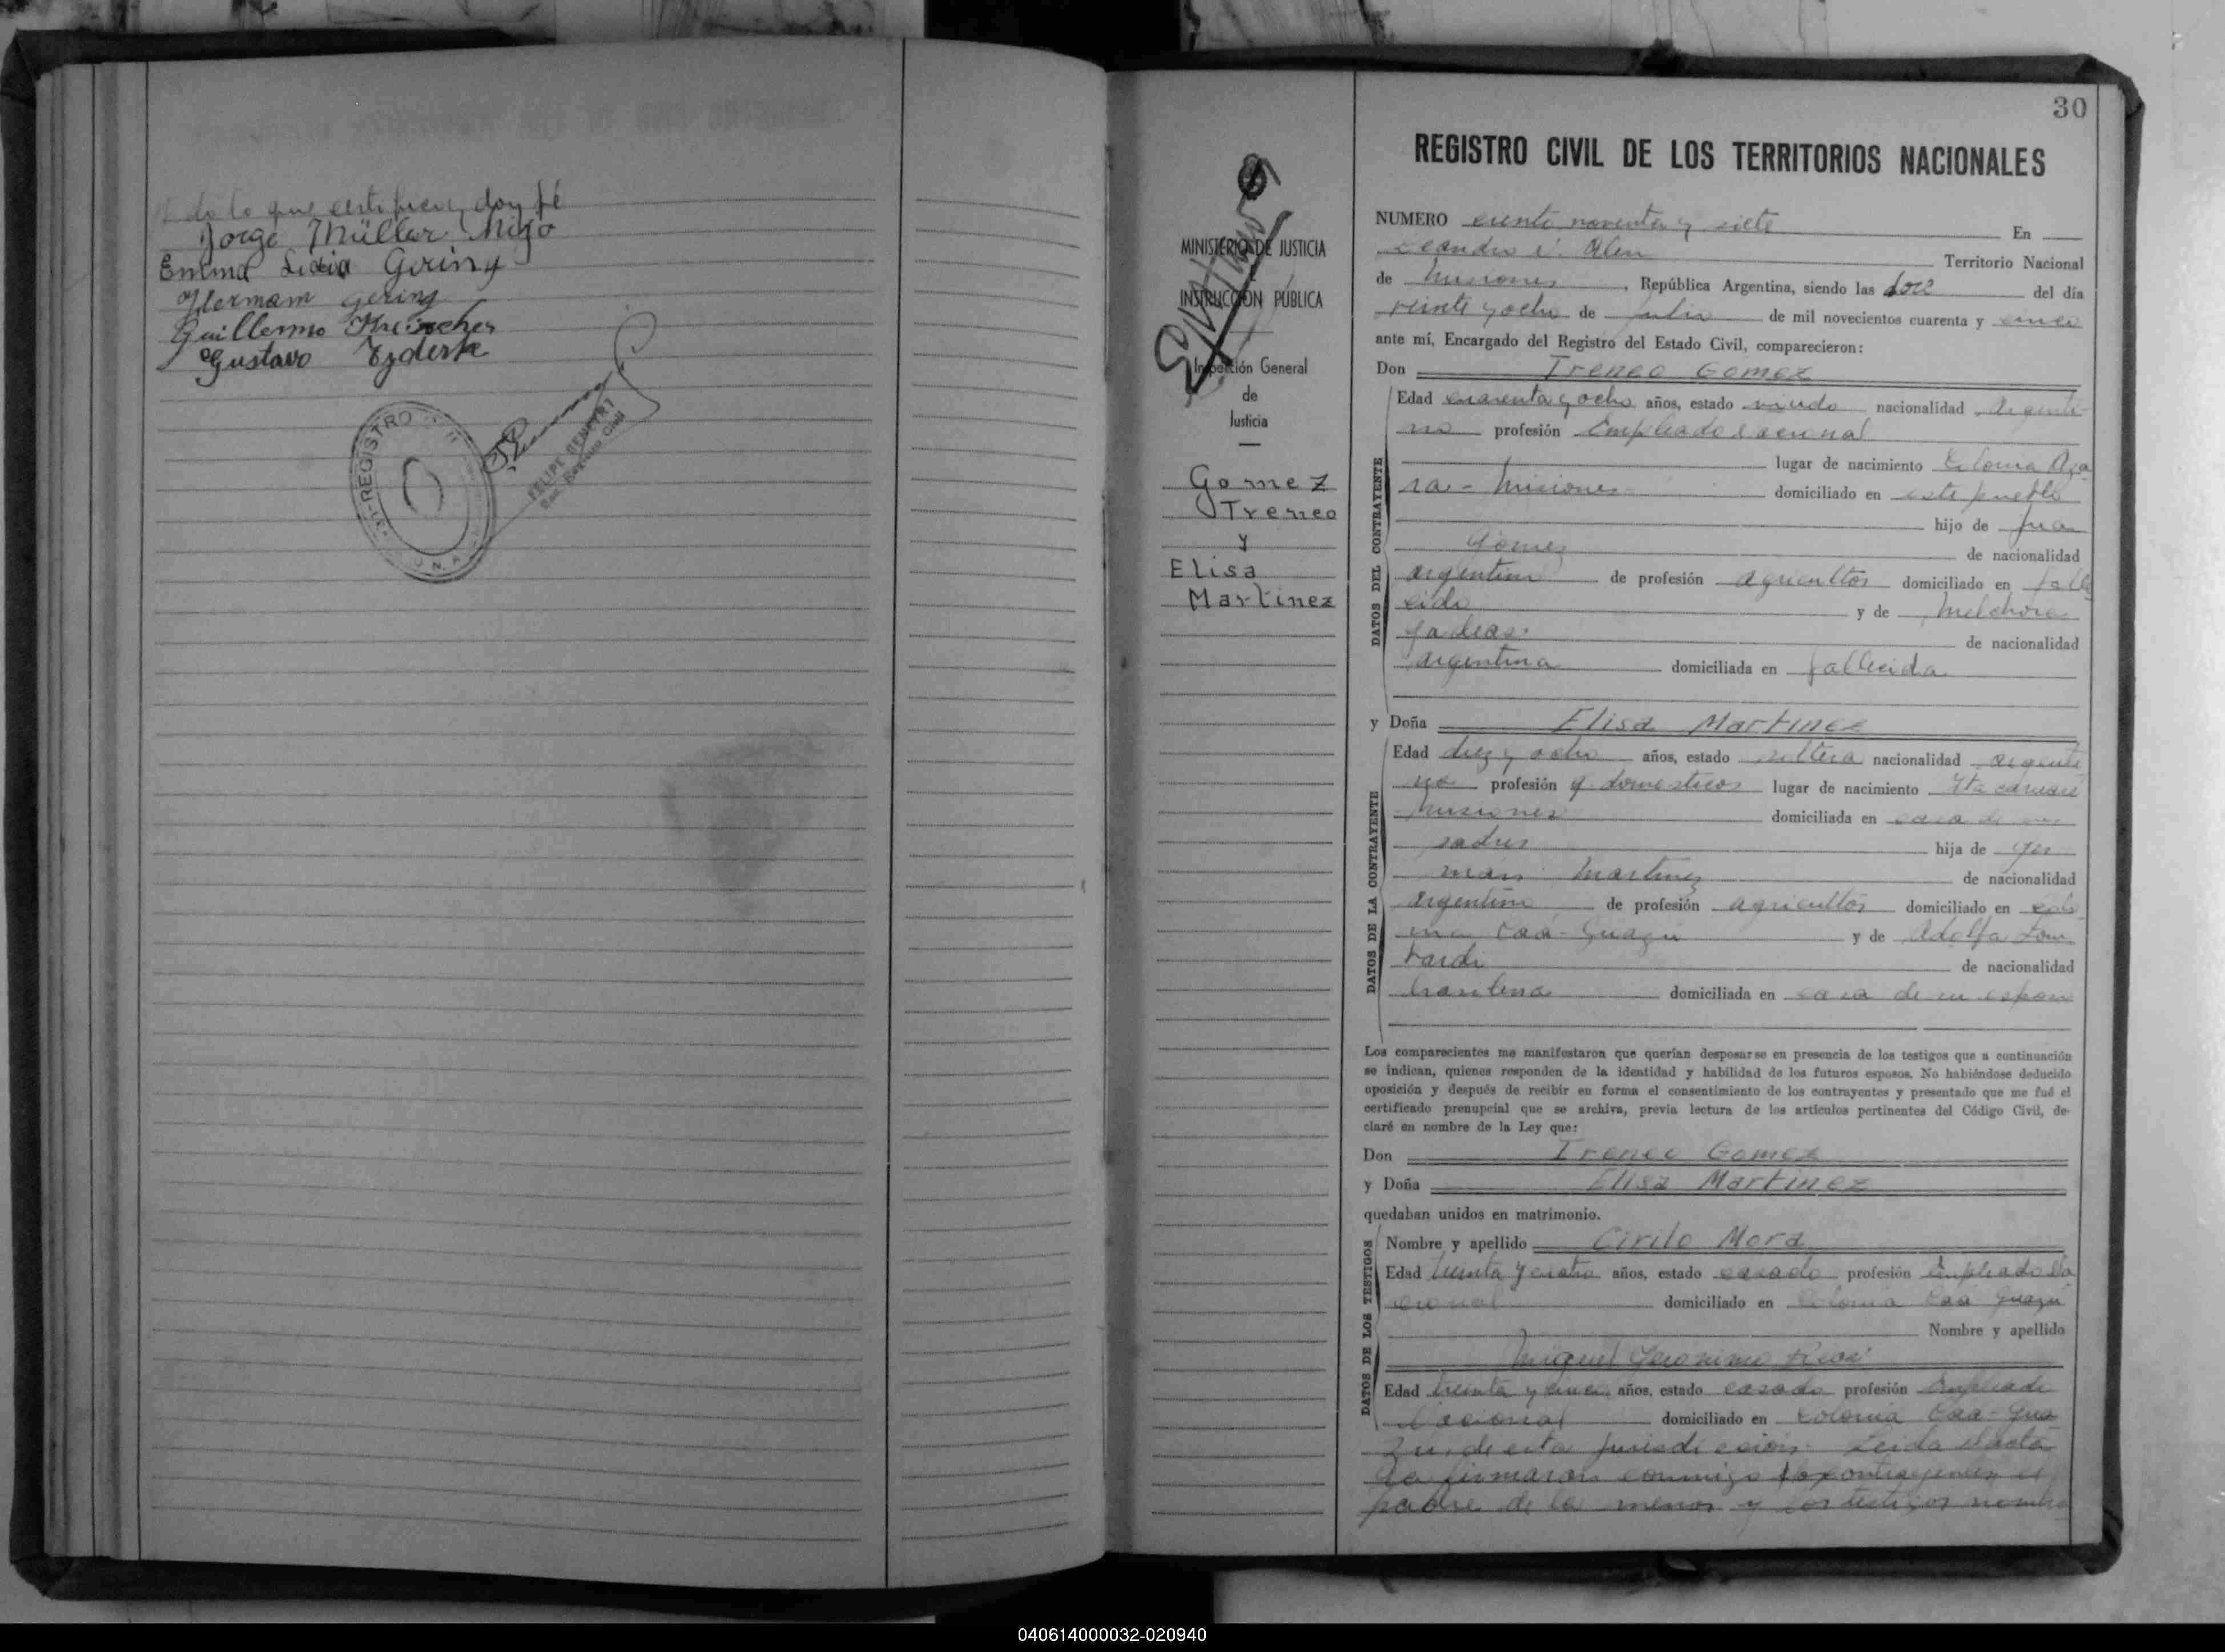 do lo que certifico, doy fé
Jorge Müller Hijo
Emma Lidia Gering
Hermann Gering
Guillermo
Gustavo
REGISTRO
FELIPE
Registro Civil
30
REGISTRO CIVIL DE LOS TERRITORIOS NACIONALES
MINISTERIO DE JUSTICIA
E
INSTRUCCIÓN PÚBLICA
Inspección General
de
Justicia
Gomez
Ireneo
y
Elisa
Martinez
NUMERO ciento noventa y siete En
Leandro N. Alem Territorio Nacional
de Misiones, República Argentina, siendo las doce del día
veinte y ocho de julio de mil novecientos cuarenta y cinco
ante mí, Encargado del Registro del Estado Civil, comparecieron:
Don Ireneo Gomez
DATOS DEL CONTRAYENTE
Edad cuarenta y ocho años, estado viudo nacionalidad argenti-
no profesión Empleado Nacional
lugar de nacimiento Colonia Aza
ra - Misiones domiciliado en este pueblo
hijo de Juan
Gomez de nacionalidad
argentina de profesión agricultor domiciliado en falle
cido y de Melchora
de nacionalidad
argentina domiciliada en fallecida
y Doña Elisa Martinez
DATOS DE LA CONTRAYENTE
Edad diez y ocho años, estado soltera nacionalidad argenti
na profesión q. domesticos lugar de nacimiento Itacaruaré
Misiones domiciliada en casa de sus
padres hija de Ger
man Martinez de nacionalidad
argentina de profesión agricultor domiciliado en Colo
nia Caá-Guazú y de Adolfa Lom
bardi de nacionalidad
brasilera domiciliada en casa de su esposo
Los comparecientes me manifestaron que querían desposarse en presencia de los testigos que a continuación
se indican, quienes responden de la identidad y habilidad de los futuros esposos. No habiéndose deducido
oposición y después de recibir en forma el consentimiento de los contrayentes y presentado que me fué el
certificado prenupcial que se archiva, previa lectura de los artículos pertinentes del Código Civil, de-
claré en nombre de la Ley que:
Don Ireneo Gomez
y Doña Elisa Martinez
quedaban unidos en matrimonio.
DATOS DE LOS TESTIGOS
Nombre y apellido Cirilo Mora
Edad treinta y cuatro años, estado casado profesión Empleado Na
cional domiciliado en Colonia Caá Guazú
Nombre y apellido
Miguel Geronimo
Edad treinta y cinco años, estado casado profesión Empleado
Nacional domiciliado en Colonia Caá-Gua
zú, de esta jurisdicción. Leida el acta
la firmaron conmigo los contrayentes el
padre de la menor y los testigos nombra
040614000032-020940